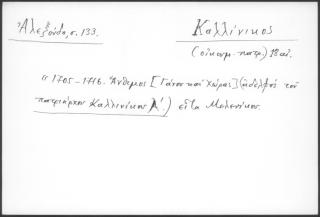 Ἀλεξούδα, σ. 133.
Καλλίνικος
(οἰκουμ. πατρ.) 18 αἰ.
" 1705-1716. Ἄνθιμος [Γάνου καὶ Χώρας] (ἀδελφὸς τοῦ
πατριάρχου Καλλινίκου Α΄.) εἶτα Μελενίκου.